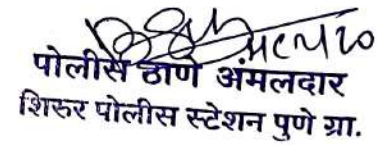 पोलीस ठाणे अंमलदार
शिरुर पोलीस स्टेशन पुणे ग्रा.